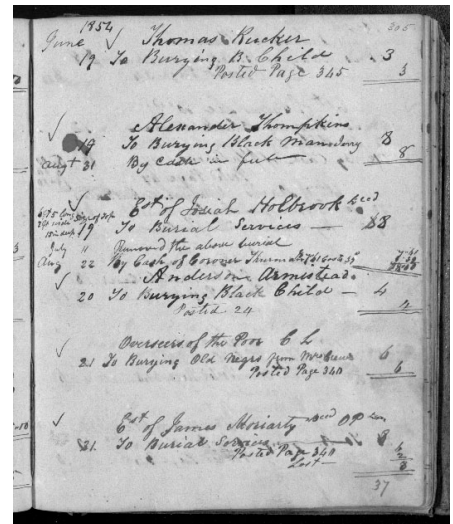 305
1854
June √ Thomas Rucker
19 To Burying B. Child 3
Posted Page 345 3
√ Alexander Thompkins
19 To Burying Black Man 8
Augt 31 By Cash in full 8
√ Est of Josiah Holbrook decd
19 To Burial Services — $8
July " Removed the above burial
Aug 22 By Cash of Coroner
√ Anderson Armistead
20 To Burying Black Child — 4
Posted 24 4
√ Overseers of the Poor C L
21 To Burying Old Negro from Mrs 6
Posted Page 340 6
√ Est of James Moriarty Decd
21 To Burial Services 8
Posted Page 340
Lost — 8
37